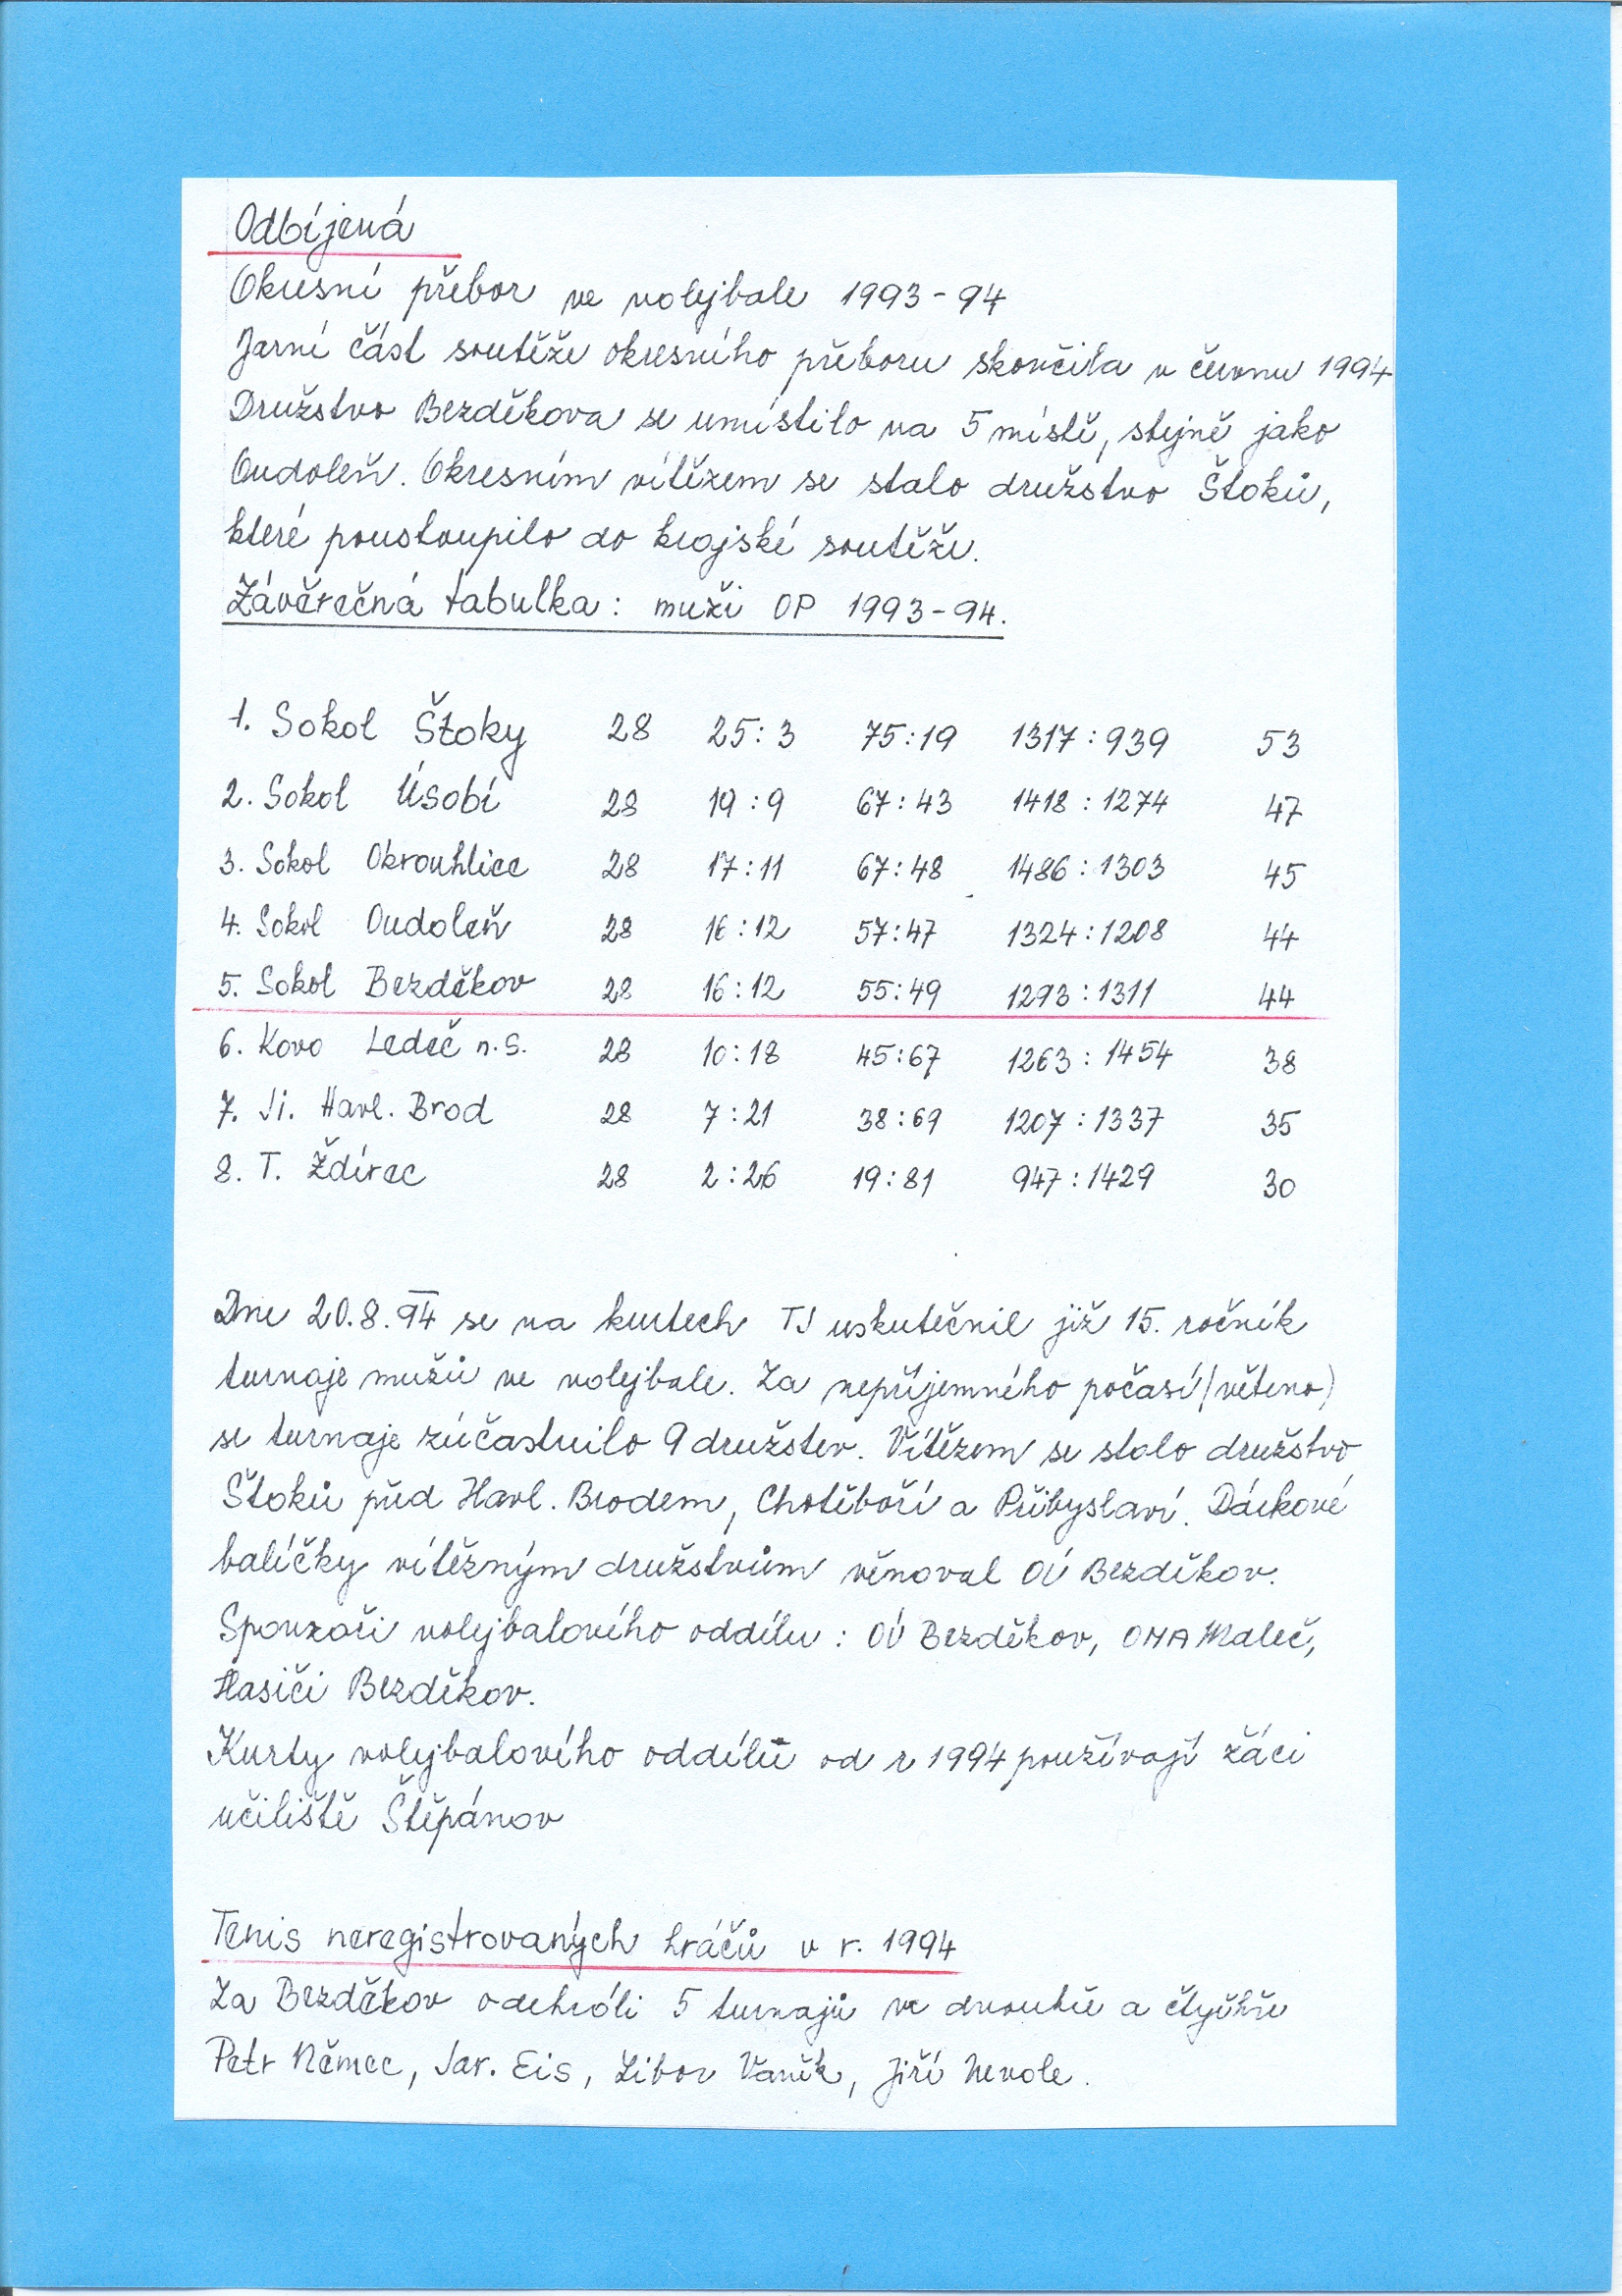 Odbíjená
Okresní přebor ve volejbale 1993-94
Jarní část soutěže okresního přeboru skončila v červnu 1994
Družstvo Bezděkova se umístilo na 5 místě, stejně jako
Oudoleň. Okresním vítězem se stalo družstvo Štoků,
které postoupilo do krajské soutěže.
Závěrečná tabulka: muži OP 1993-94.
1. Sokol Štoky 28 25:3 75:19 1317:939 53
2. Sokol Úsobí 28 19:9 67:43 1418:1274 47
3. Sokol Okrouhlice 28 17:11 67:48 1486:1303 45
4. Sokol Oudoleň 28 16:12 57:47 1324:1208 44
5. Sokol Bezděkov 28 16:12 55:49 1293:1311 44
6. Kovo Ledeč n.S. 28 10:18 45:67 1263:1454 38
7. Ji. Havl. Brod 28 7:21 38:69 1207:1337 35
8. T. Ždírec 28 2:26 19:81 947:1429 30
Dne 20.8.94 se na kurtech TJ uskutečnil již 15. ročník
turnaje mužů ve volejbale. Za nepříjemného počasí (větrno)
se turnaje zúčastnilo 9 družstev. Vítězem se stalo družstvo
Štoků před Havl. Brodem, Chotěboří a Přibyslaví. Dárkové
balíčky vítězným družstvům věnoval OÚ Bezděkov.
Sponzoři volejbalového oddílu: OÚ Bezděkov, OHA Maleč,
Hasiči Bezděkov.
Kurty volejbalového oddílů od r 1994 používají žáci
učiliště Štěpánov
Tenis neregistrovaných hráčů v r. 1994
Za Bezděkov odehráli 5 turnajů ve dvouhře a čtyřhře
Petr Němec, Jar. Eis, Libor Vaněk, Jiří Nevole.